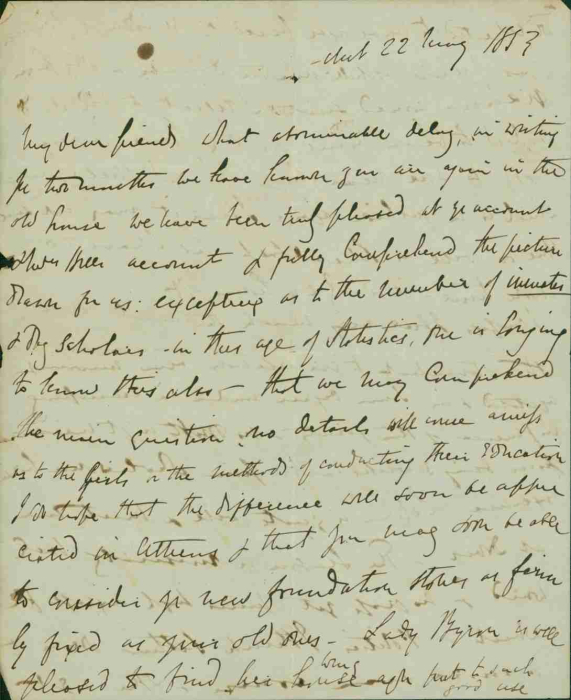 22 May 1853
My dear friends what abominable delay, in writing
for two months we have known you are again in the
old house we have been truly pleased at yr account
account & fully Comprehend the picture
drawn for us: excepting as to the number of inmates
& Day Scholars - in this age of Statistics, one is longing
to know this also - that we may Comprehend
the main question no details will come amiss
as to the girls or the methods of conducting their Education
I do hope that the difference will soon be appre
ciated in Athens & that you may soon be able
to consider yr new foundation stones as firm
ly fixed as your old ones - Lady Byron is well
pleased to find her being again put to such
good use